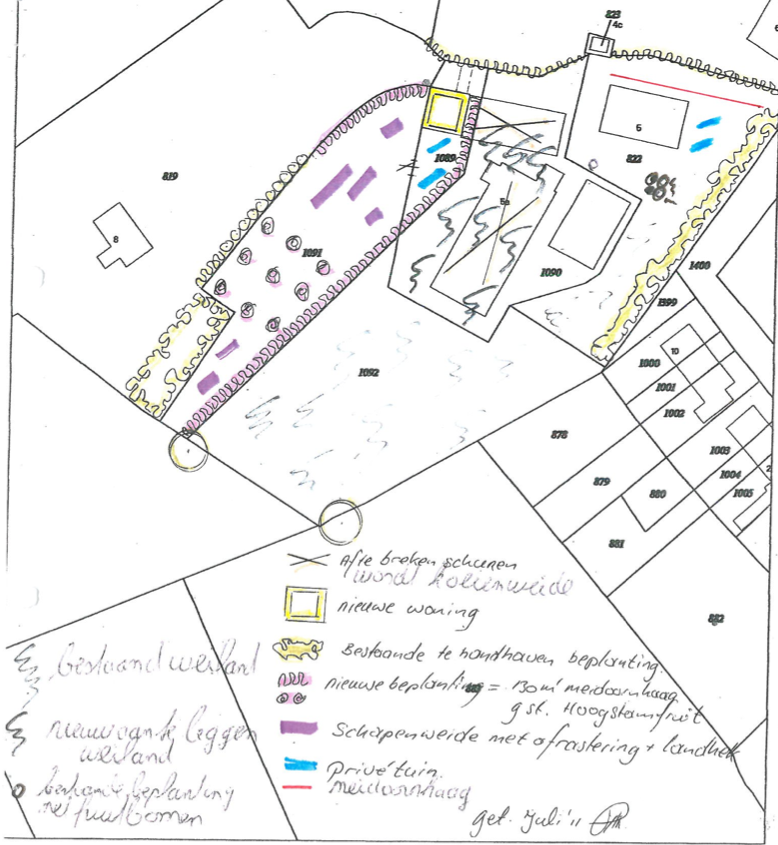 823
4c
6
5
822
1089
819
8
5a
1091
1090
1400
1399
1092
10
1000
1001
1002
878
1003
879
1004
2
880
1005
881
882
Afte breken schuren
wordt koeienweide
nieuwe woning
Bestaande te handhaven beplanting
nieuwe beplanting = 130 m' meidoornhaag
9 st. Hoogstamfruit
Schapenweide met afrastering + landhek
Privétuin
meidoornhaag
bestaand weiland
nieuw aan te leggen
weiland
bestaande beplanting
met fruitbomen
get. Juli '11